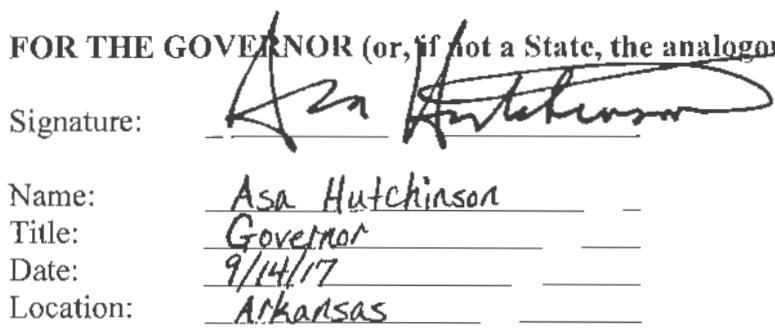 FOR THE GOVERNOR (or, if not a State, the analogou
Signature: Asa Hutchinson
Name: Asa Hutchinson
Title: Governor
Date: 9/14/17
Location: Arkansas